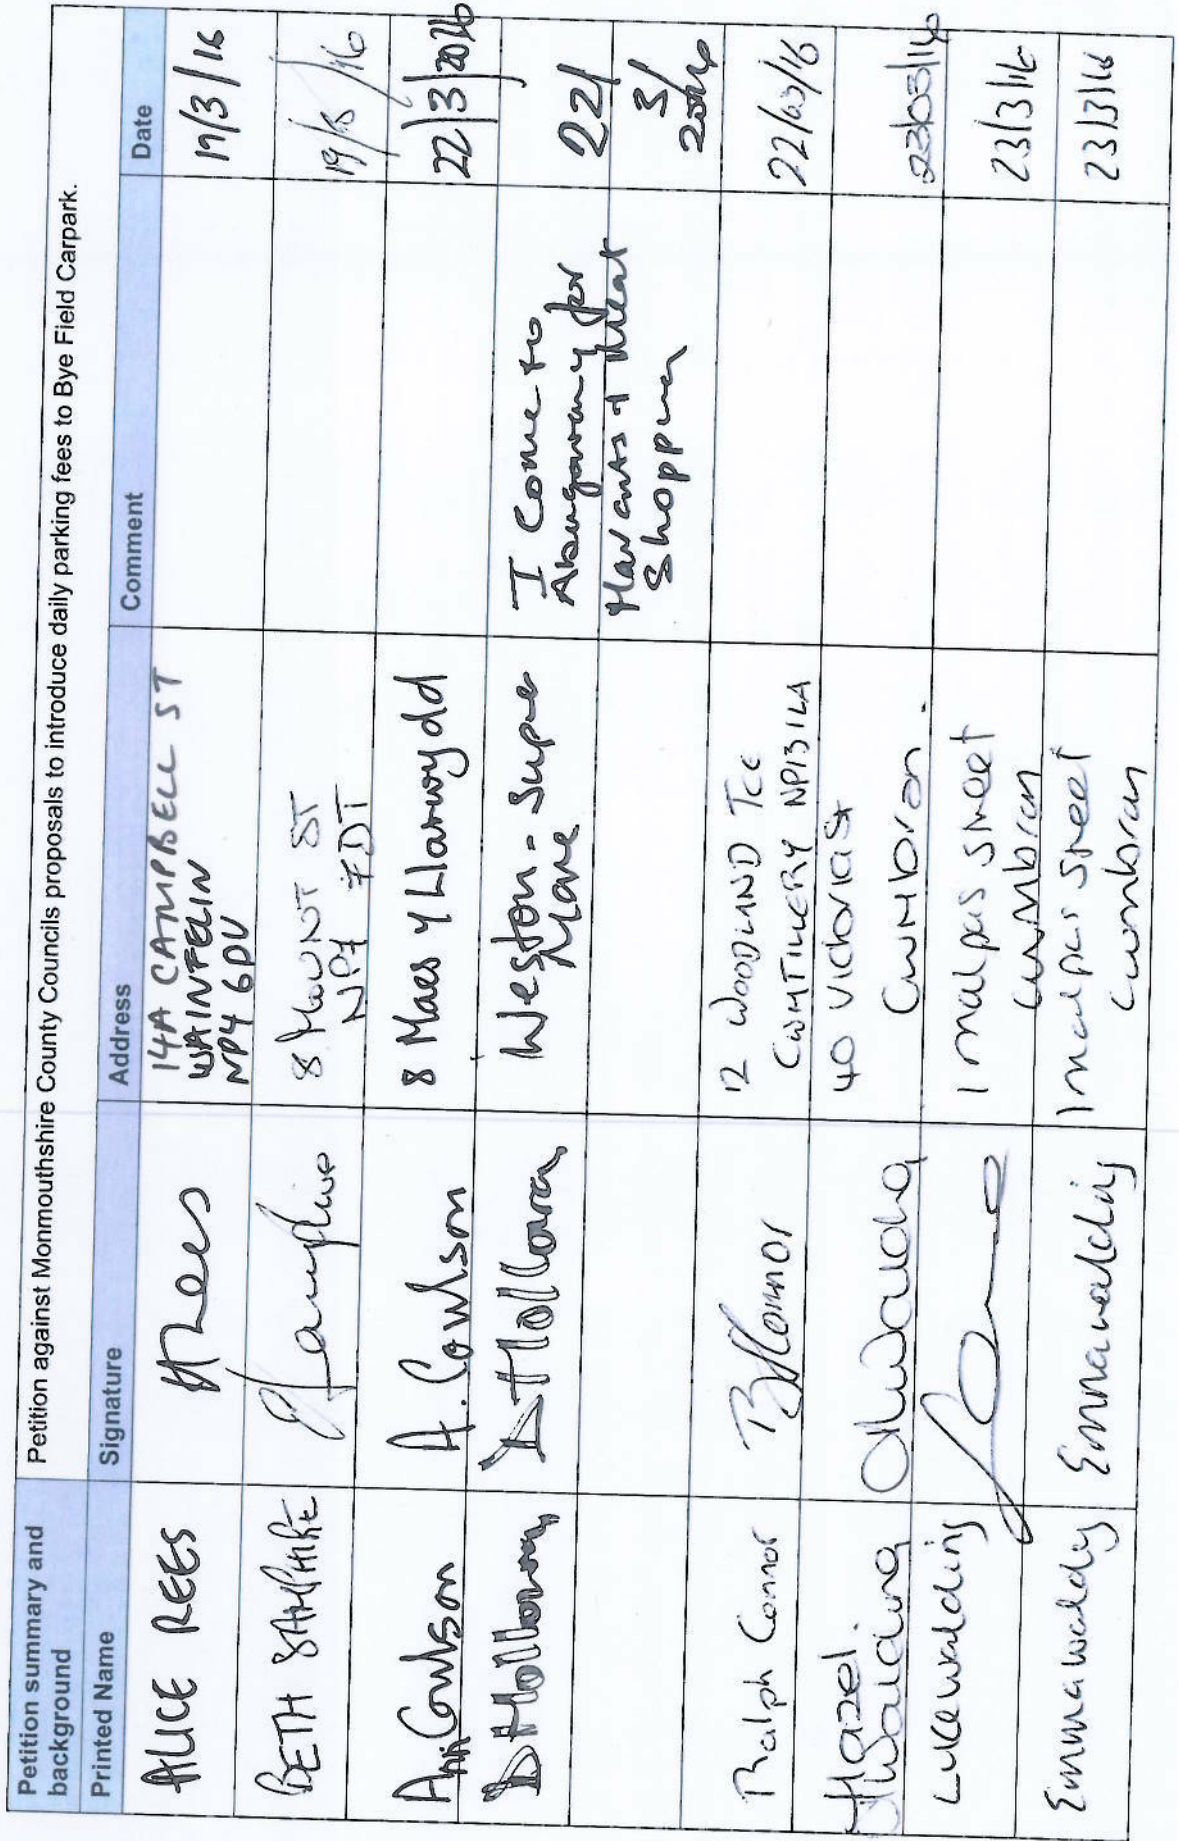 Petition summary and background
Petition against Monmouthshire County Councils proposals to introduce daily parking fees to Bye Field Carpark.
Printed Name Signature Address Comment Date
ALICE REES ARees 14A CAMPBELL ST
WAINFELIN
NP4 6DV
BETH 8 MOUNT ST
NP7 7DT
19/3/16
Ann Cowlson A. Cowlson 8 Maes y Llarwydd 22/3/2016
D Holloway D Holloway Weston-Supre
Mare
I Come to
Abergavenny for
Markets + Meat
Shopping
22/
3/
2016
Ralph Connor R Connor 12 WOODLAND TCE
CWMTILLERY NP13 1LA
22/03/16
Hazel
Walding
HWalding 40 Victoria St
Cwmbran.
23/03/16
Luke walding 1 malpas street
cwmbran
23/3/16
Emma walding Emma walding 1 malpas street
cwmbran
23/3/16